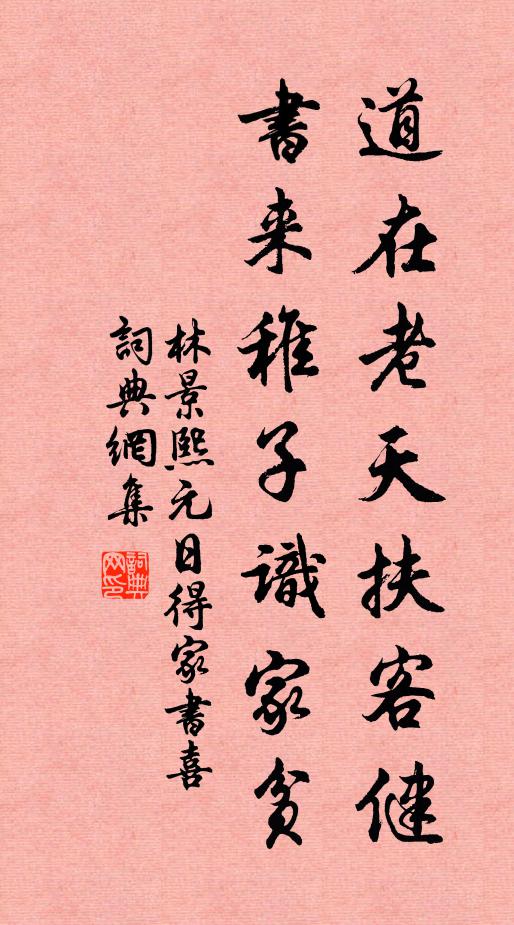 道在老天扶客健
書来稚子識家貧
林景熙元日得家書喜
詞典網集
詞典网印